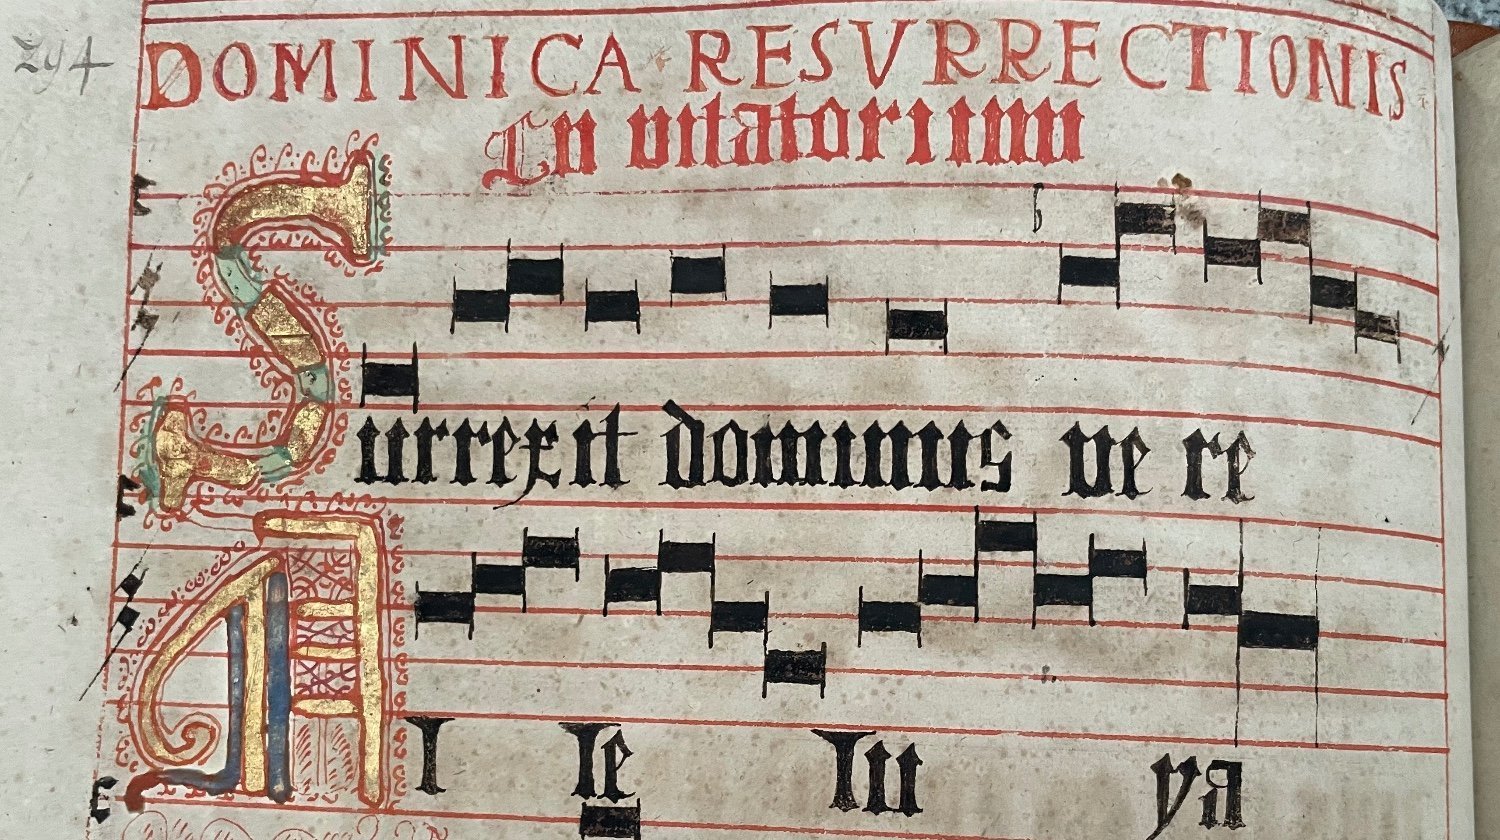 294
DOMINICA RESVRRECTIONIS
In vitatorium
Surrexit dominus ve re
Al le lu ya